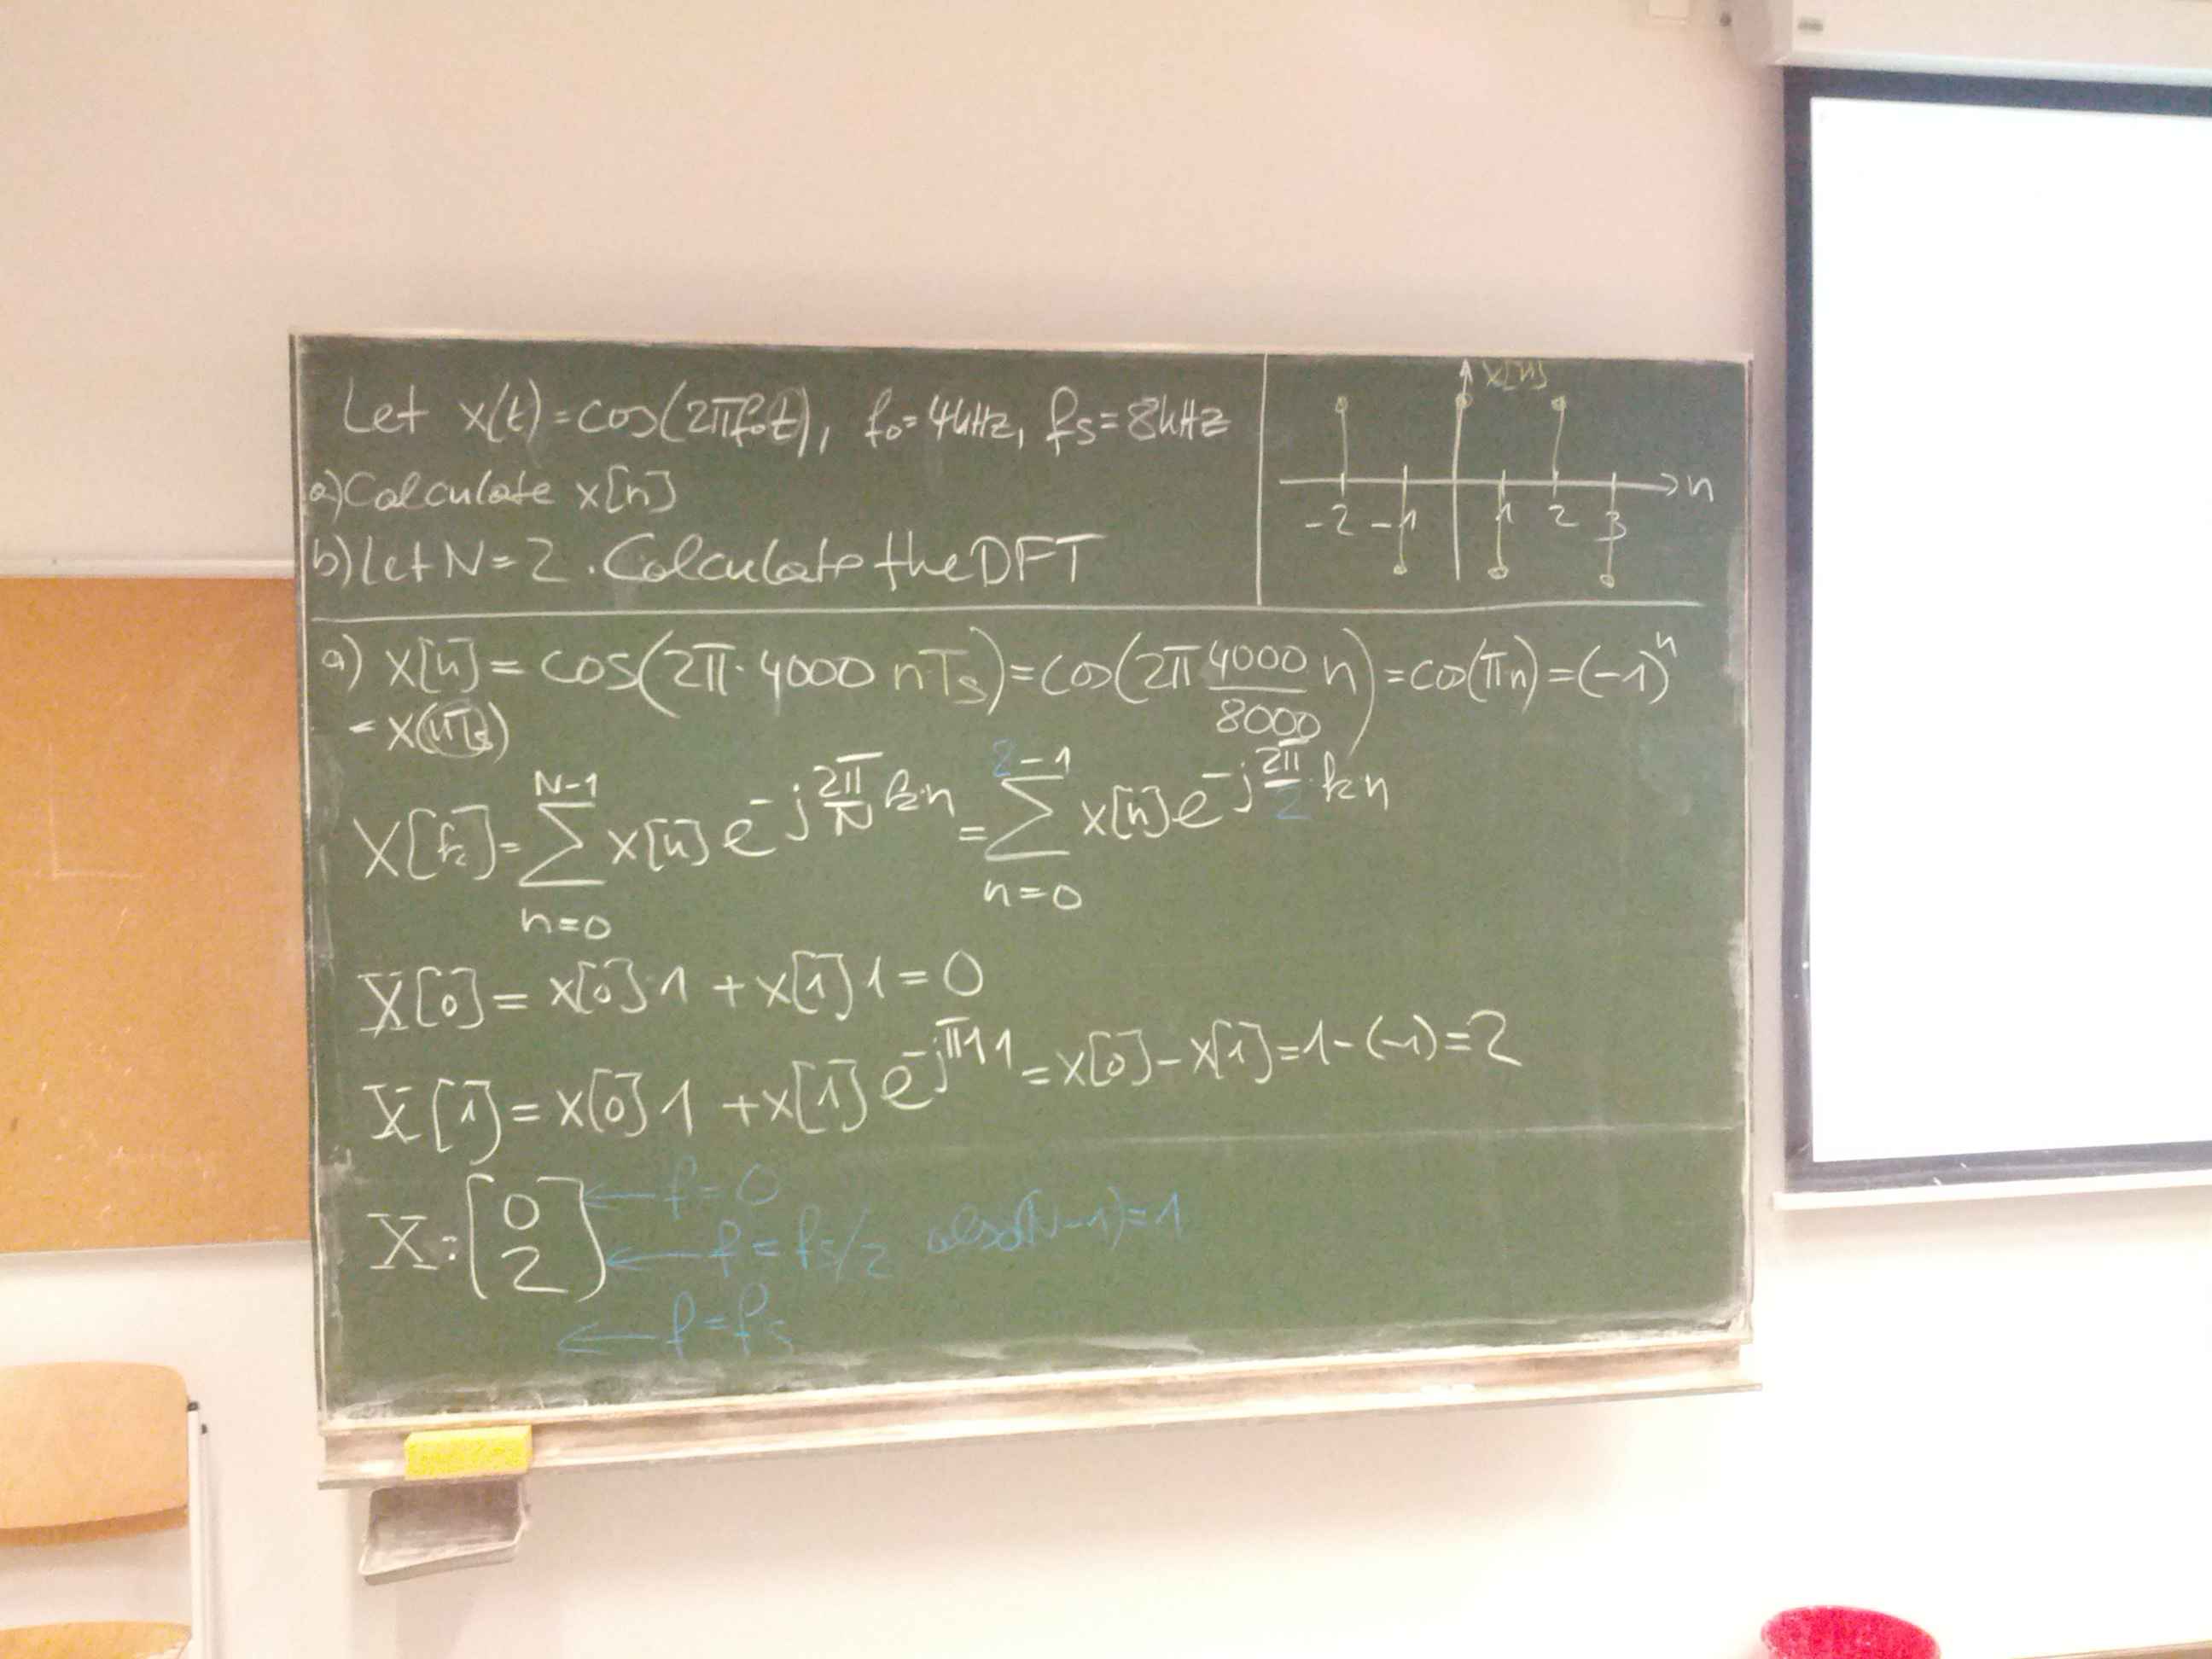 Let x(t)=cos(2πf₀t), f₀=4kHz, fs=8kHz
a)Calculate x[n]
b)Let N=2. Calculate the DFT
x[n]
n
-2 -1 1 2 3
a) x[n] = cos(2π·4000 nTs)=cos(2π 4000/8000 n)=cos(πn)=(-1)ⁿ
= x(nTs)
X[k]= ∑_{n=0}^{N-1} x[n] e^{-j 2π/N k·n} = ∑_{n=0}^{2-1} x[n] e^{-j 2π/2 ·k·n}
X[0] = x[0]·1 + x[1] 1 = 0
X[1] = x[0] 1 + x[1] e^{-jπ11} = x[0] - x[1] = 1-(-1) = 2
X: [0 ← f=0
2] ← f = fs/2 (N-1)=1
← f=fs